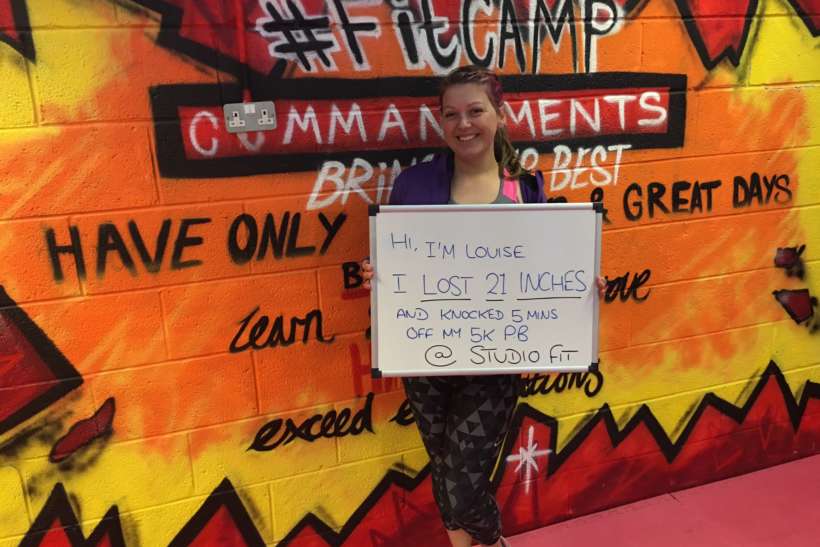 #FitCAMP
COMMANDMENTS
BRING BEST
HAVE ONLY & GREAT DAYS
Learn
exceed
HI, I'M LOUISE
I LOST 21 INCHES
AND KNOCKED 5 MINS
OFF MY 5K PB
@ STUDIO FIT